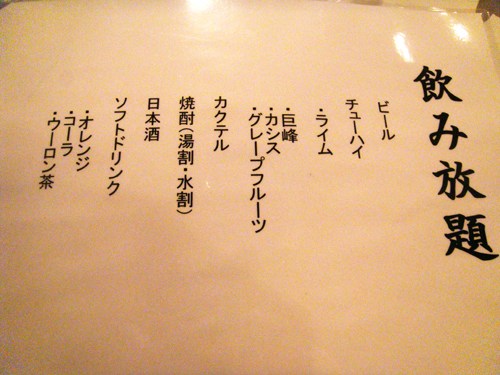 飲み放題
ビール
チューハイ
・ライム
・巨峰
・カシス
・グレープフルーツ
カクテル
焼酎(湯割・水割)
日本酒
ソフトドリンク
・オレンジ
・コーラ
・ウーロン茶